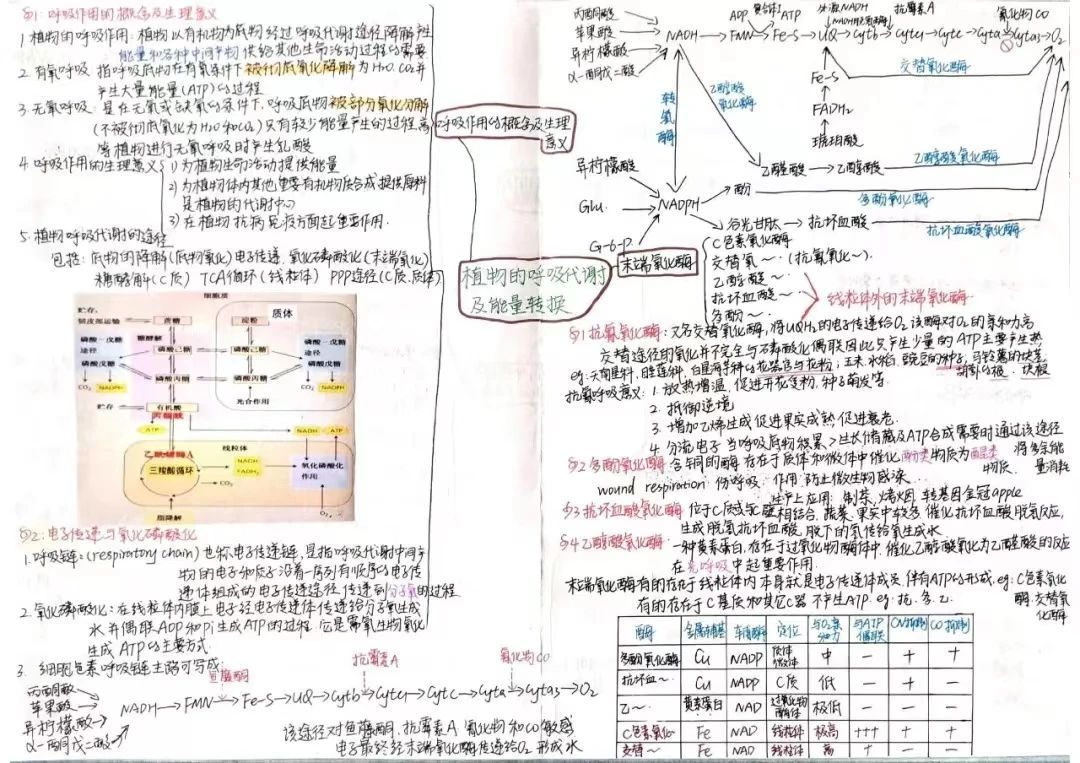 §1. 呼吸作用的概念及生理意义
1. 植物的呼吸作用: 植物以有机物为底物经过呼吸代谢途径降解产生
能量和各种中间产物 供给其他生命活动过程的需要
2. 有氧呼吸 指呼吸底物在有氧条件下被彻底氧化降解为H₂O CO₂并
产生大量能量(ATP)的过程
3. 无氧呼吸 是在无氧或缺氧的条件下, 呼吸底物被部分氧化分解
(不被彻底氧化为H₂O和CO₂)只有较少能量产生的过程. 高
等植物进行无氧呼吸时产生乳酸
4. 呼吸作用的生理意义 1) 为植物生命活动提供能量
2) 为植物体内其他重要有机物质合成提供原料
是植物的代谢中心
3) 在植物抗病免疫方面起重要作用.
5. 植物呼吸代谢的途径
包括: 底物的降解(底物氧化) 电子传递, 氧化磷酸化(末端氧化)
糖酵解(C质) TCA循环(线粒体) PPP途径(C质.质体)
细胞质
贮存, 韧皮部运输 蔗糖 淀粉 质体
磷酸戊糖途径 糖酵解
磷酸己糖 磷酸己糖 磷酸戊糖途径
磷酸戊糖 磷酸丙糖 磷酸丙糖 磷酸戊糖
CO₂ NADPH CO₂ NADPH
光合作用
贮存 有机酸
丙酮酸
ATP NADH ATP
乙酰辅酶A 线粒体
三羧酸循环 NADH FADH₂ 氧化磷酸化作用
CO₂ O₂
脂降解
§2. 电子传递与氧化磷酸化
1. 呼吸链: (respiratory chain) 也称电子传递链, 是指呼吸代谢中间产
物的电子和质子沿着一序列有顺序的电子传
递体组成的电子传递途径 传递到分子氧的过程
2. 氧化磷酸化: 在线粒体内膜上电子经电子传递体传递给分子氧生成
水并偶联ADP和Pi生成ATP的过程. 它是需氧生物氧化
生成ATP的主要方式.
3. 细胞色素呼吸链主路可写成:
鱼藤酮 抗霉素A 氰化物CO
丙酮酸
苹果酸
异柠檬酸
α-酮戊二酸
NADH→FMN→Fe-S→UQ→Cytb→Cytc1→Cytc→Cyta→Cyta3→O₂
该途径对鱼藤酮. 抗霉素A 氰化物和CO敏感
电子最终经末端氧化酶传递给O₂ 形成水
呼吸作用的概念及生理意义
植物的呼吸代谢及能量转换
末端氧化酶
丙酮酸
苹果酸
异柠檬酸
α-酮戊二酸
ADP ATP 外源NADH 抗霉素A 氰化物CO
NADH→FMN→Fe-S→UQ→Cytb→Cytc1→Cytc→Cyta→Cyta3→O₂
交替氧化酶
Fe-S
FADH₂
琥珀酸
转氢酶
乙醇酸氧化酶
异柠檬酸 乙醛酸→乙醇酸 乙醇酸氧化酶
Glu. NADPH 酚 多酚氧化酶
G-6-P 谷光甘肽→抗坏血酸 抗坏血酸氧化酶
C色素氧化酶
交替氧~. (抗氰氧化~).
乙醇酸~
抗坏血酸~
多酚~
线粒体外的末端氧化酶
§1 抗氰氧化酶: 又名交替氧化酶, 将UQH₂的电子传递给O₂ 该酶对O₂的亲和力高
交替途径的氧化并不完全与磷酸化偶联因此只产生少量的ATP主要产生热
抗氰呼吸意义: 1. 放热增温, 促进开花受粉, 种子萌发等.
2. 抵御逆境
3. 增加乙烯生成 促进果实成熟 促进衰老.
4. 分流电子 当呼吸底物效果>生长、储藏及ATP合成需要时通过该途径
将多余能量消耗
§2 多酚氧化酶 含铜的酶 存在于质体和微体中催化酚类物质为醌类物质.
wound respiration 伤呼吸 作用: 防止微生物感染
生产上应用: 制茶, 烤烟, 转基因金冠apple
§3 抗坏血酸氧化酶 位于C质或与C壁相结合, 蔬菜, 果实中较多 催化抗坏血酸脱氧反应,
生成脱氢抗坏血酸, 脱下的氢传给氧生成水
§4 乙醇酸氧化酶. 一种黄素蛋白, 存在于过氧化物酶体中, 催化乙醇酸氧化为乙醛酸的反应
在光呼吸中起重要作用.
末端氧化酶有的在于线粒体内本身就是电子传递体成员, 伴有ATP的形成. eg: C色素氧化酶.交替氧化酶
有的存在于C基质和其它C器 不产生ATP. eg: 抗. 多. 乙.
酶 金属辅基 辅酶 定位 与O₂亲和力 与ATP偶联 CN抑制 CO抑制
多酚氧化酶 Cu NADP 质体微体 中 — + +
抗坏血~ Cu NADP C质 低 — + —
乙~ 黄素蛋白 NAD 过氧化物酶体 极低 — — —
C色素氧化~ Fe NAD 线粒体 极高 +++ + +
交替~ Fe NAD 线粒体 高 + — —